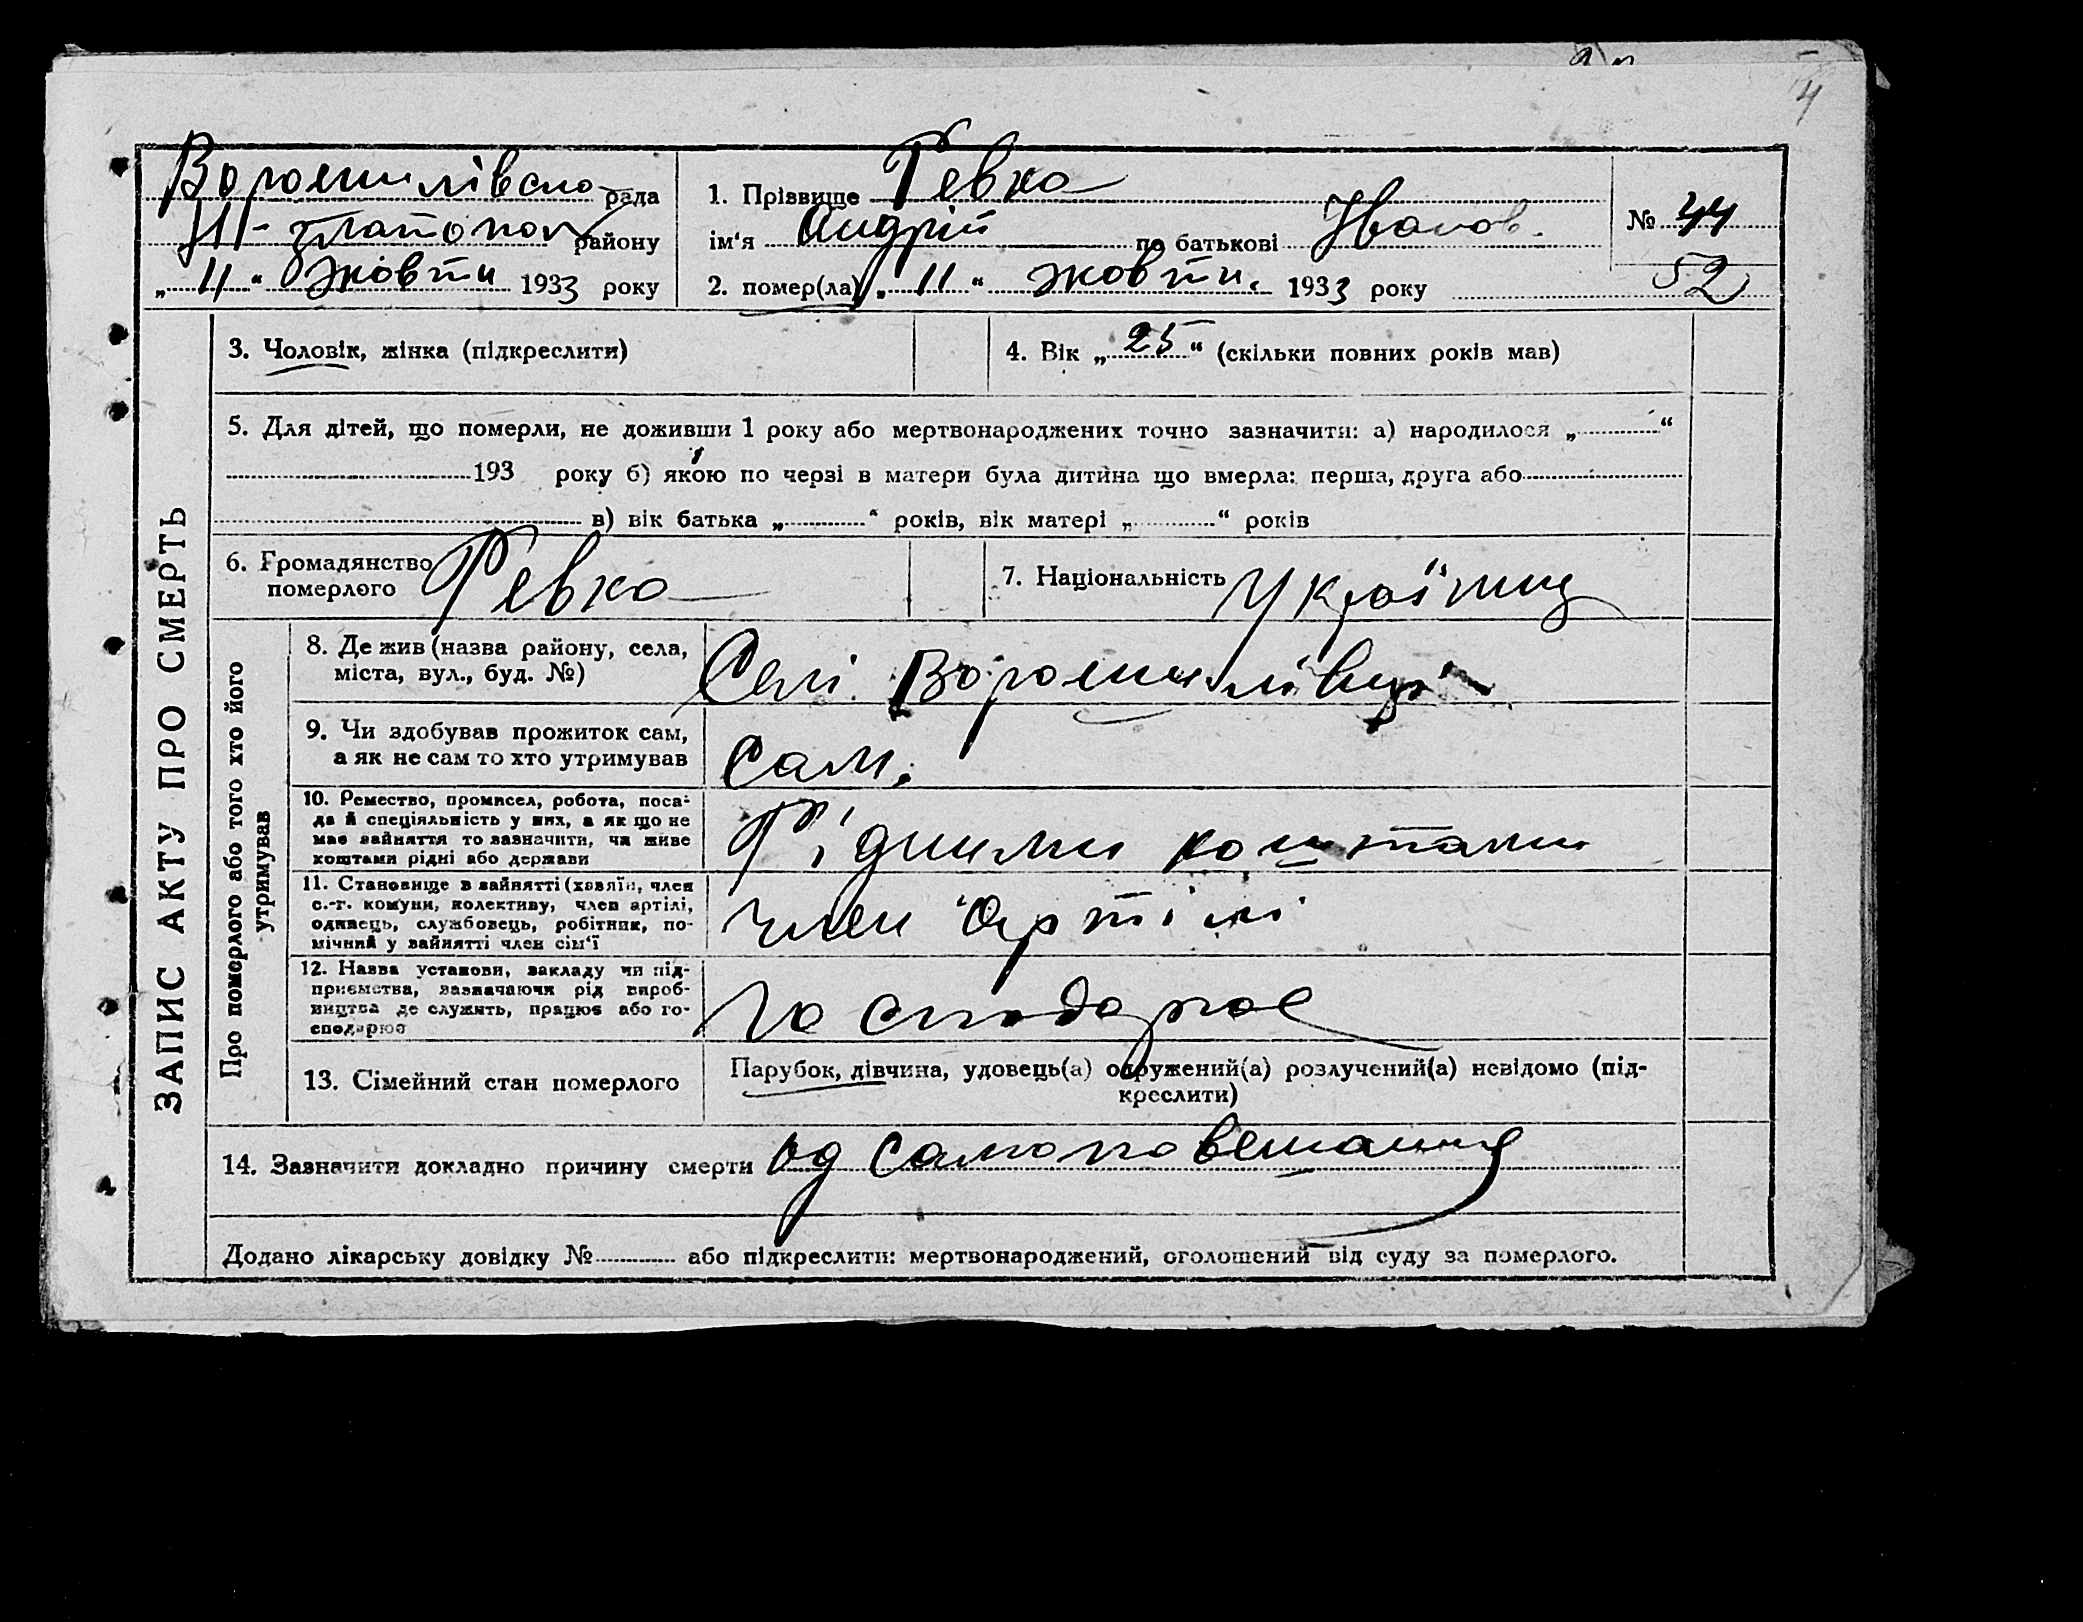 4
Ворошилівсько рада
Н-платонов району
„ 11 “ жовтн 1933 року
1. Прізвище Ревко
ім‘я Андрій по батькові Іванов.
2. помер(ла) „ 11 “ жовтн. 1933 року
№ 44
52
3. Чоловік, жінка (підкреслити)
4. Вік „ 25 “ (скільки повних років мав)
5. Для дітей, що померли, не доживши 1 року або мертвонароджених точно зазначити: а) народилося „ “
193 року б) якою по черзі в матери була дитина що вмерла: перша, друга або
в) вік батька „ “ років, вік матері „ “ років
6. Громадянство
померлого Ревко
7. Національність Українц
ЗАПИС АКТУ ПРО СМЕРТЬ
Про померлого або того хто його
утримував
8. Де жив (назва району, села,
міста, вул., буд. №)
Селі Ворошилівці
9. Чи здобував прожиток сам,
а як не сам то хто утримував
Сам.
10. Ремество, промисел, робота, поса-
да й спеціяльність у них, а як що не
має зайняття то зазначити, чи живе
коштами рідні або держави
Рідними коштами
11. Становище в зайнятті (хазяїн, член
с.-г. комуни, колективу, член артілі,
одинець, службовець, робітник, по-
мічний у зайнятті член сім‘ї
член Артілі
12. Назва установи, закладу чи під-
приємства, зазначаючи рід вироб-
ництва де служить, працює або го-
сподарює
Господарює
13. Сімейний стан померлого
Парубок, дівчина, удовець(а) одружений(а) розлучений(а) невідомо (під-
креслити)
14. Зазначити докладно причину смерти од самоповешання
Додано лікарську довідку № або підкреслити: мертвонароджений, оголошений від суду за померлого.